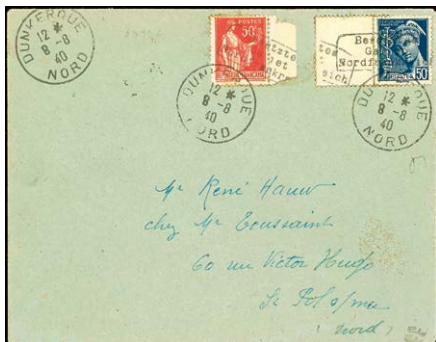 DUNKERQUE
12 *
8 -8
40
NORD
POSTES
50c
DUNKERQUE
12 *
8 -8
40
NORD
Nordf
50
DUNKERQUE
12 *
8 -8
40
NORD
Mr René Hauw
chez Mr Toussaint
60 rue Victor Hugo
St Pol s/mer
(nord)